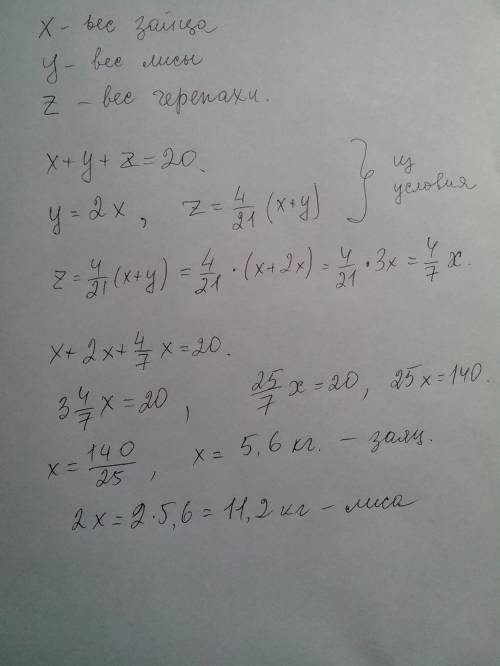 x - вес зайца
y - вес лисы
z - вес черепахи.
x+y+z=20.
y=2x, z=4/21(x+y)
из условия
z=4/21(x+y)=4/21·(x+2x)=4/21·3x=4/7x.
x+2x+4/7x=20.
3 4/7x=20, 25/7x=20, 25x=140.
x=140/25, x=5,6 кг. - заяц.
2x=2·5,6=11,2 кг - лиса